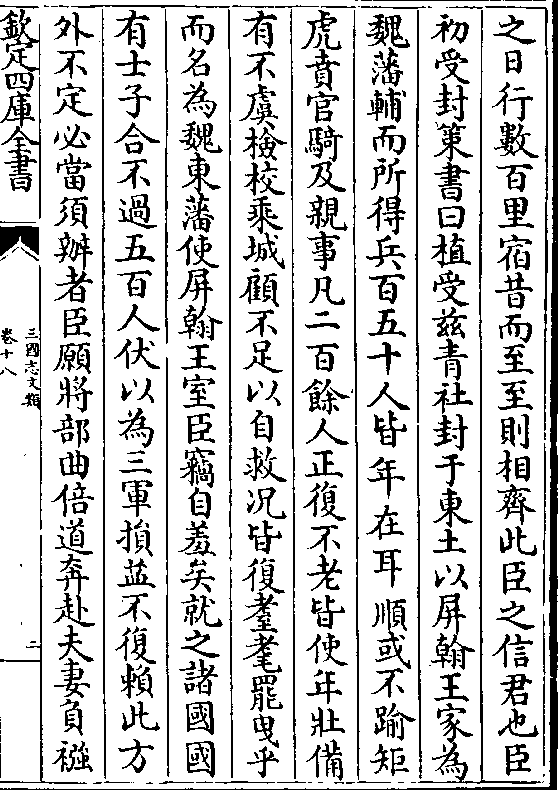 之日行數百里宿昔而至至則相齊此臣之信君也臣
初受封策書曰植受兹青社封于東土以屏翰王家為
魏藩輔而所得兵百五十人皆年在耳順或不踰矩
虎賁官騎及親事凡二百餘人正復不老皆使年壯備
有不虞檢校乘城顧不足以自救況皆復耊耄罷曵乎
而名為魏東藩使屏翰王室臣竊自羞矣就之諸國國
有士子合不過五百人伏以為三軍損益不復賴此方
外不定必當須辦者臣願將部曲倍道奔赴夫妻負襁
欽定四庫全書
三國志文類
卷十八
二